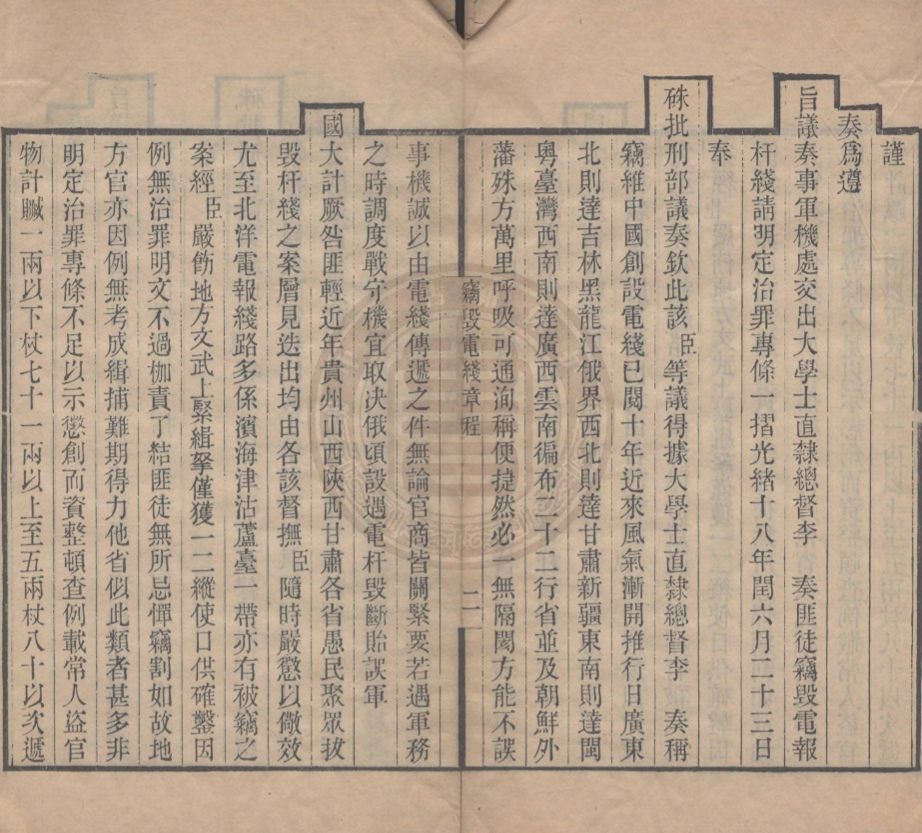 謹
奏爲遵
旨議奏事軍機處交出大學士直隸總督李　奏匪徒竊毀電報
杆綫請明定治罪專條一摺光緒十八年閏六月二十三日
奉
硃批刑部議奏欽此該臣等議得據大學士直隸總督李　奏稱
竊維中國創設電綫已閱十年近來風氣漸開推行日廣東
北則達吉林黑龍江俄界西北則達甘肅新疆東南則達閩
粵臺灣西南則達廣西雲南徧布二十二行省並及朝鮮外
藩殊方萬里呼吸可通洵稱便捷然必一無隔閡方能不誤
竊毀電綫章程　二
事機誠以由電綫傳遞之件無論官商皆關緊要若遇軍務
之時調度戰守機宜取决俄頃設遇電杆毀斷貽誤軍
國大計厥咎匪輕近年貴州山西陝西甘肅各省愚民聚眾拔
毀杆綫之案層見迭出均由各該督撫臣隨時嚴懲以儆效
尤至北洋電報綫路多係濱海津沽蘆臺一帶亦有被竊之
案經臣嚴飭地方文武上緊緝拏僅獲一二縱使口供確鑿因
例無治罪明文不過枷責了結匪徒無所忌憚竊割如故地
方官亦因例無考成緝捕難期得力他省似此類者甚多非
明定治罪專條不足以示懲創而資整頓查例載常人盜官
物計贓一兩以下杖七十一兩以上至五兩杖八十以次遞